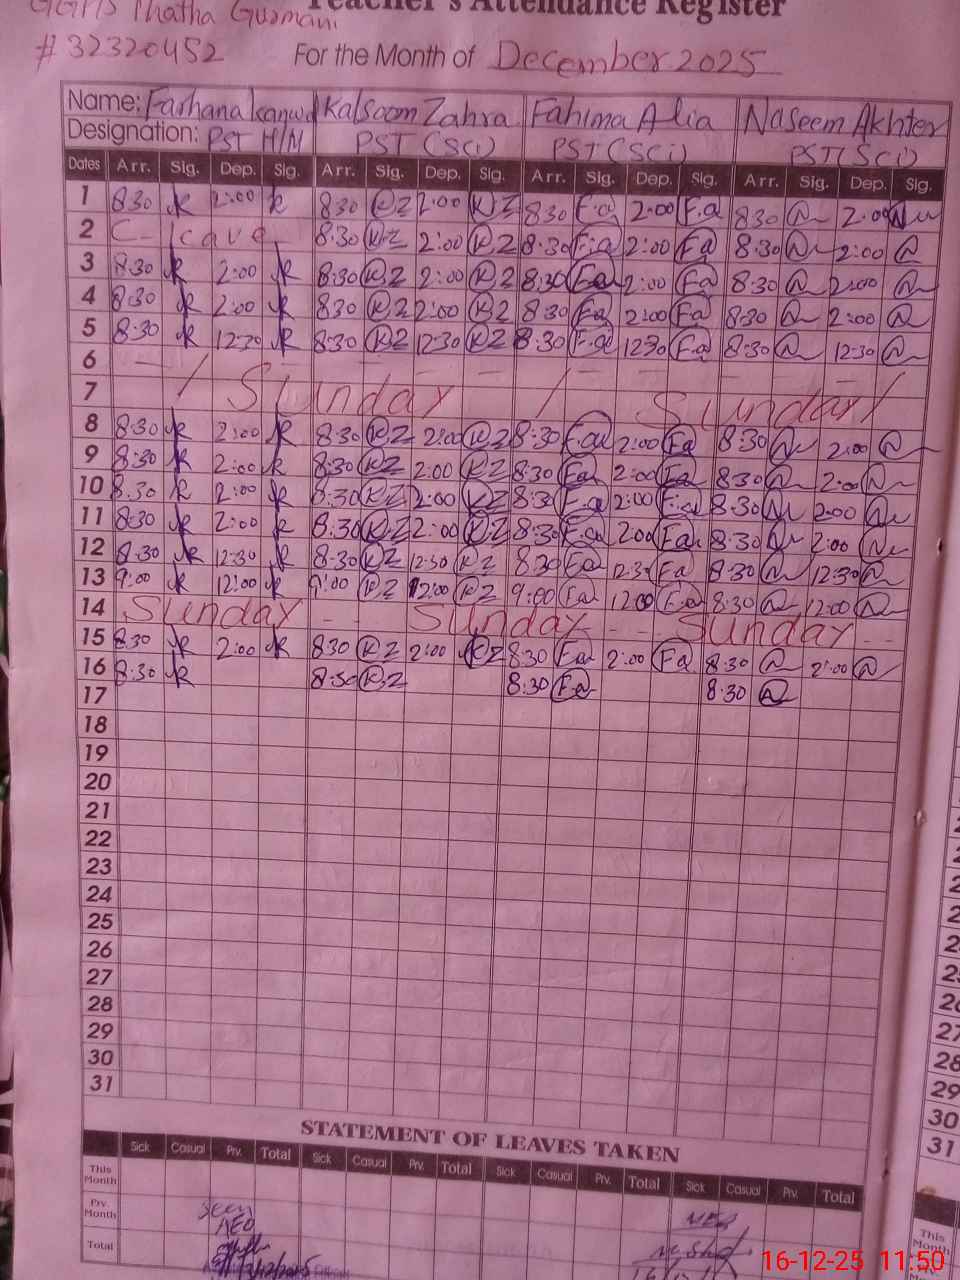 GGPS Thatha Gurmani
Teacher's Attendance Register
# 32320452 For the Month of December 2025
Name: Farhana Kanwal Kalsoom Zahra Fahima Alia Naseem Akhter
Designation: PST H/N PST (Sci) PST (SCi) PST (Sci)
Dates Arr. Sig. Dep. Sig. Arr. Sig. Dep. Sig. Arr. Sig. Dep. Sig. Arr. Sig. Dep. Sig.
1 8:30 k 2:00 k 8:30 KZ 2:00 KZ 8:30 F.a 2:00 F.a 8:30 2:00
2 C-leave 8:30 KZ 2:00 KZ 8:30 F.a 2:00 Fa 8:30 2:00
3 8:30 k 2:00 k 8:30 KZ 2:00 KZ 8:30 Fa 2:00 Fa 8:30 2:00
4 8:30 k 2:00 k 8:30 KZ 2:00 KZ 8:30 Fa 2:00 Fa 8:30 2:00
5 8:30 k 12:30 k 8:30 KZ 12:30 KZ 8:30 F.a 12:30 F.a 8:30 12:30
6
7 Sunday Sunday
8 8:30 k 2:00 k 8:30 KZ 2:00 KZ 8:30 F.a 2:00 Fa 8:30 2:00
9 8:30 k 2:00 k 8:30 KZ 2:00 KZ 8:30 Fa 2:00 Fa 8:30 2:00
10 8:30 k 2:00 k 8:30 KZ 2:00 KZ 8:30 Fa 2:00 F.a 8:30 2:00
11 8:30 k 2:00 k 8:30 KZ 2:00 KZ 8:30 F.a 2:00 Fa 8:30 2:00
12 8:30 k 12:30 k 8:30 KZ 12:30 KZ 8:30 Fa 12:30 Fa 8:30 12:30
13 9:00 k 12:00 k 9:00 KZ 12:00 KZ 9:00 Fa 12:00 F.a 8:30 12:00
14 Sunday Sunday Sunday
15 8:30 k 2:00 k 8:30 KZ 2:00 KZ 8:30 Fa 2:00 Fa 8:30 2:00
16 8:30 k 8:30 KZ 8:30 Fa 8:30
17
18
19
20
21
22
23
24
25
26
27
28
29
30
31
STATEMENT OF LEAVES TAKEN
Sick Casual Prv. Total Sick Casual Prv. Total Sick Casual Prv. Total Sick Casual Prv. Total
This Month
Prv. Month Seen
AEO
Total
27
28
29
30
31
This Month
16-12-25 11:50